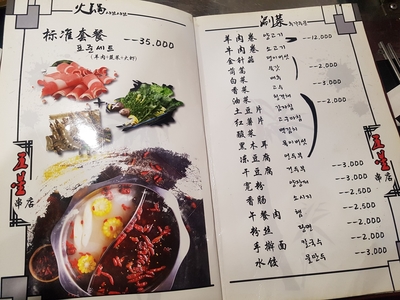 火锅
标准套餐 --35,000
표준세트
(羊肉+蔬菜+大虾)
五星
串店
涮菜
羊肉卷 양고기 --12,000
牛肉卷 소고기
金针菇 팽이버섯
茼蒿 쑥갓 --2,000
白菜 배추
香菜
油菜 청경채
土豆片 감자 --2,000
红薯片 고구마
酸菜
黑木耳 목이버섯
冻豆腐 언두부
干豆腐 건두부 --3,000
宽粉 --3,000
香肠 소시지 --2,500
午餐肉 햄 --2,500
粉丝 당면 --2,000
手擀面 칼국수 --2,000
水饺 물만두 --3,000
五星
串店